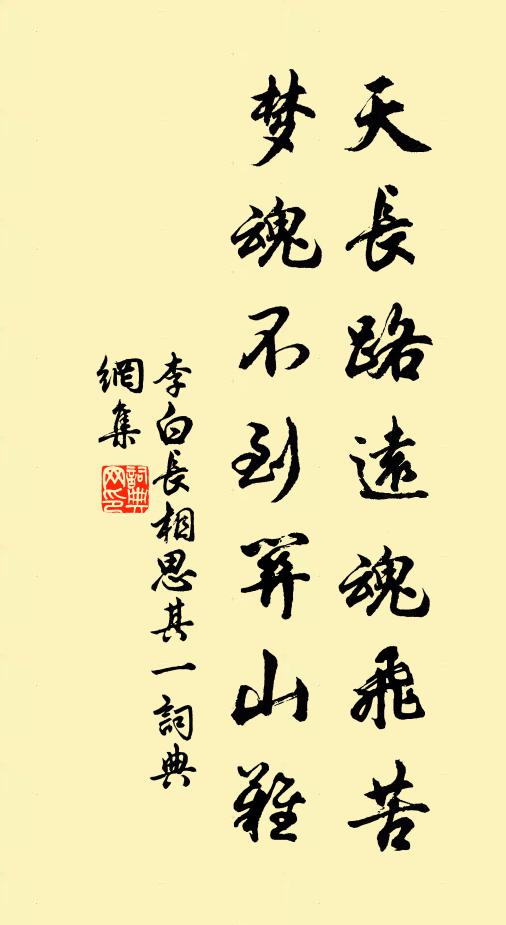 天長路遠魂飛苦
梦魂不到關山難
李白長相思其一詞典
網集
詞典
网印